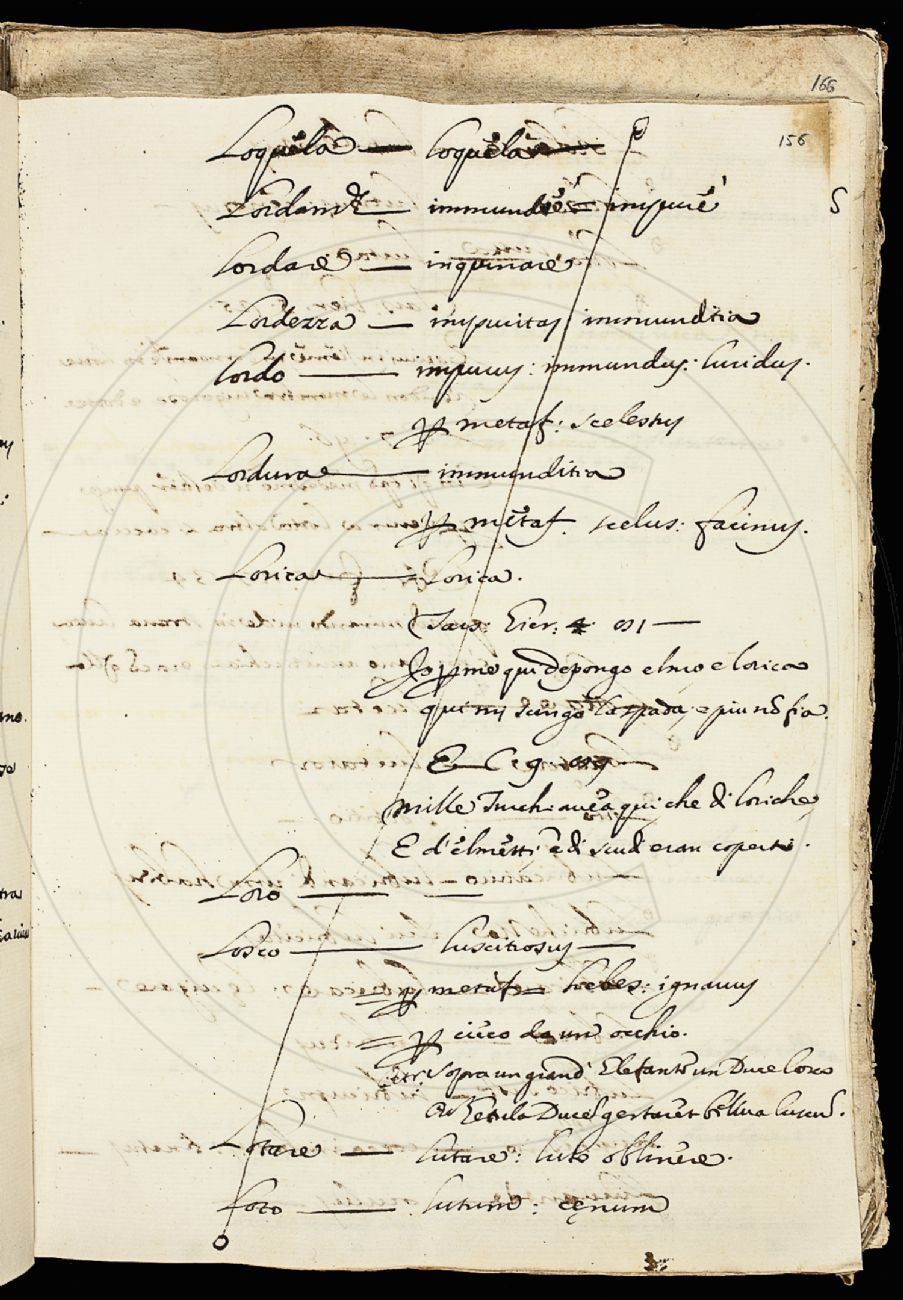 166
156
Loquela — loquela
S
Lordamte — immundè = impurè
Lordare — inquinare
Lordezza — impuritas immunditia
Lordo — impurus: immundus: luridus.
metaf: scelestus
Lordura — immunditia
metaf. scelus: facinus.
Lorica — lorica.
Io qui depongo elmo e lorica
qui mi scingo la spada, e più nõ fia.
E C. 9.
Mille Turchi avea qui che di loriche
E d'elmetti, e di scudi eran coperti.
Loro — —
Losco — lusciosus —
= metaf = hebes: ignavus
= cieco da un occhio.
Sopra un grand' Elefante un Duce losco
Getula Ducẽ gestaret bellua luscũ.
Lotare — lutare: luto oblinere.
Loto — lutum: cęnum